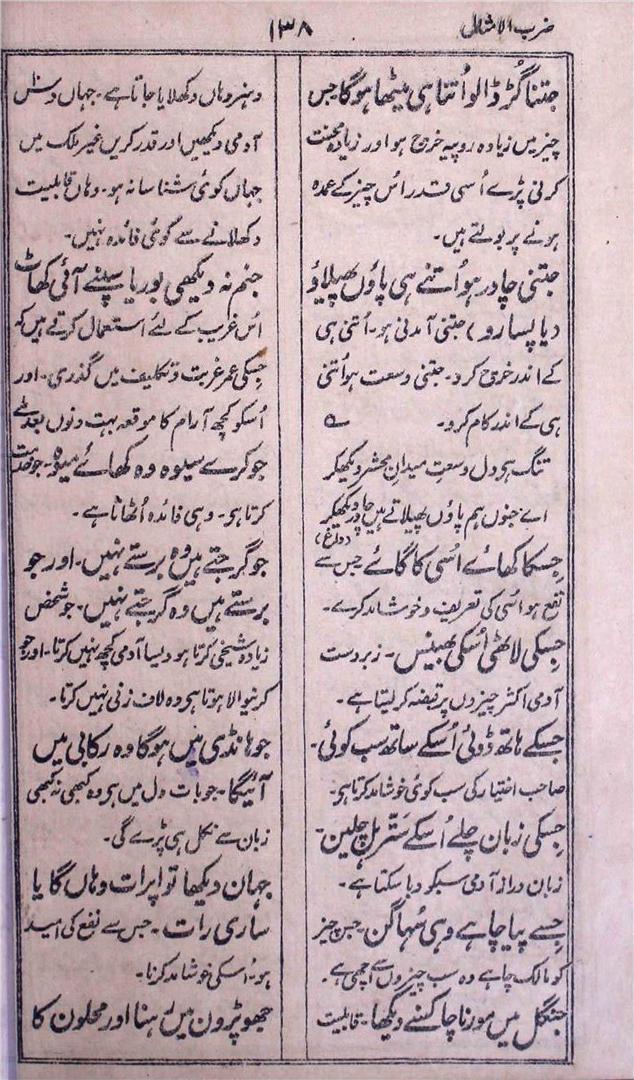 ضرب الامثال
۱۳۸
جتنا گُڑ ڈالو اُتنا ہی میٹھا ہوگا جس
چیز میں زیادہ روپیہ خرچ ہو اور زیادہ محنت
کرنی پڑے اُسی قدر اُس چیز کے عمدہ
ہونے پر بولتے ہیں۔
جتنی چادر ہو اُتنے ہی پاؤں پھیلاؤ
دیا پسارو) جتنی آمدنی ہو۔ اُتنی ہی
کے اندر خرچ کرو۔ جتنی وسعت ہو اُتنی
ہی کے اندر کام کرو۔ ؎
تنگ ہی دل وسعتِ میدانِ محشر دیکھکر
اے جنوں ہم پاؤں پھیلاتے ہیں چادر دیکھکر
(داغ)
جسکا کھائے اُسی کا گائے جس سے
نفع ہو اُسی کی تعریف و خوشامد کرے۔
جسکی لاٹھی اُسکی بھینس۔ زبردست
آدمی اکثر چیزوں پر قبضہ کر لیتا ہے۔
جسکے ہاتھ ڈوئی اُسکے ساتھ سب کوئی۔
صاحب اختیار کی سب کوئی خوشامد کرتا ہی۔
جسکی زبان چلے اُسکے ستر ہل چلین۔
زبان دراز آدمی سبکو دبا سکتا ہے۔
جسے پیا چاہے وہی سُہاگن۔ جس چیز
کو مالک چاہے وہ سب چیزوں سے اچھی ہے۔
جنگل میں مور ناچا کسنے دیکھا۔ قابلیت
و ہنر وہاں دکھلایا جاتا ہے۔ جہاں دس
آدمی دیکھیں اور قدر کریں غیر ملک میں
جہاں کوئی شناسا نہ ہو۔ وہاں قابلیت
دکھلانے سے کوئی فائدہ نہیں۔
جنم نہ دیکھی بوریا سپنے آئی کھاٹ
اُس غریب کے لئے استعمال کرتے ہیں کہ
جسکی عمر غربت و تکلیف میں گذری۔ اور
اُسکو کچھ آرام کا موقعہ بہت دنوں بعد ملے
جو کرے سیوہ وہ کھائے میوہ۔ جو خدمت
کرتا ہو۔ وہی فائدہ اُٹھاتا ہے۔
جو گرجتے ہیں وہ برستے نہیں۔ اور جو
برستے ہیں وہ گرجتے نہیں۔ جو شخص
زیادہ شیخی کرتا ہو ویسا آدمی کچھ نہیں کرتا۔ اور جو
کرنیوالا ہوتا ہی وہ لاف زنی نہیں کرتا۔
جو ہانڈی میں ہوگا وہ رکابی میں
آئیگا۔ جو بات دل میں ہی وہ کبھی نہ کبھی
زبان سے نکل ہی پڑے گی۔
جہان دیکھا توا پرات وہاں گایا
ساری رات۔ جس سے نفع کی امید
ہو۔ اُسکی خوشامد کرنا۔
جھوپڑون میں رہنا اور محلون کا